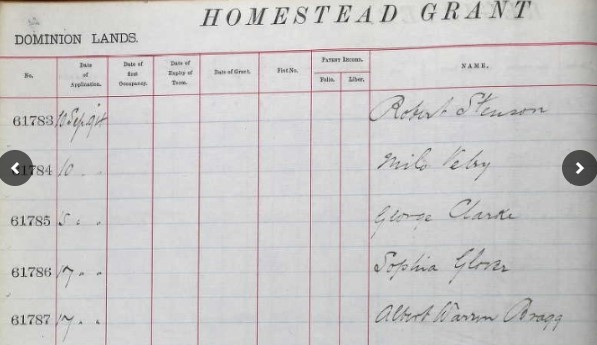 HOMESTEAD GRANT
DOMINION LANDS.
No. Date of Application. Date of first Occupancy. Date of Expiry of Term. Date of Grant. Fiat No. PATENT RECORD. Folio. Liber. NAME.
61783 Sep 94 Robert Stenson
61784 10 " " Milo
61785 5 " " George Clarke
61786 17 " " Sophia Glover
61787 17 " " Albert Warren Bragg